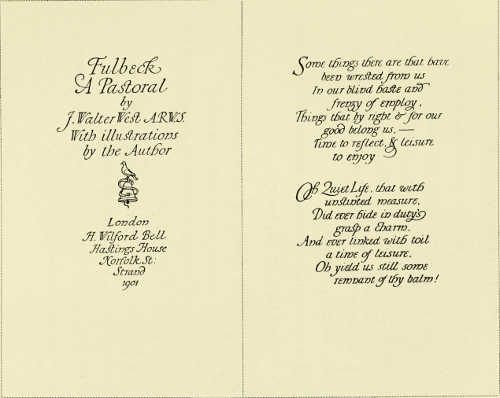 Fulbeck
A Pastoral
by
J. Walter West A.R.W.S.
With illustrations
by the Author
London
H. Wilford Bell
Hastings House
Norfolk St:
Strand
1901
Some things there are that have
been wrested from us
In our blind haste and
frenzy of employ,
Things that by right & for our
good belong us, —
Time to reflect & leisure
to enjoy
Oh Quiet Life, that with
unstinted measure,
Did ever hide in duty's
grasp a charm,
And ever linked with toil
a time of leisure,
Oh yield us still some
remnant of thy balm!